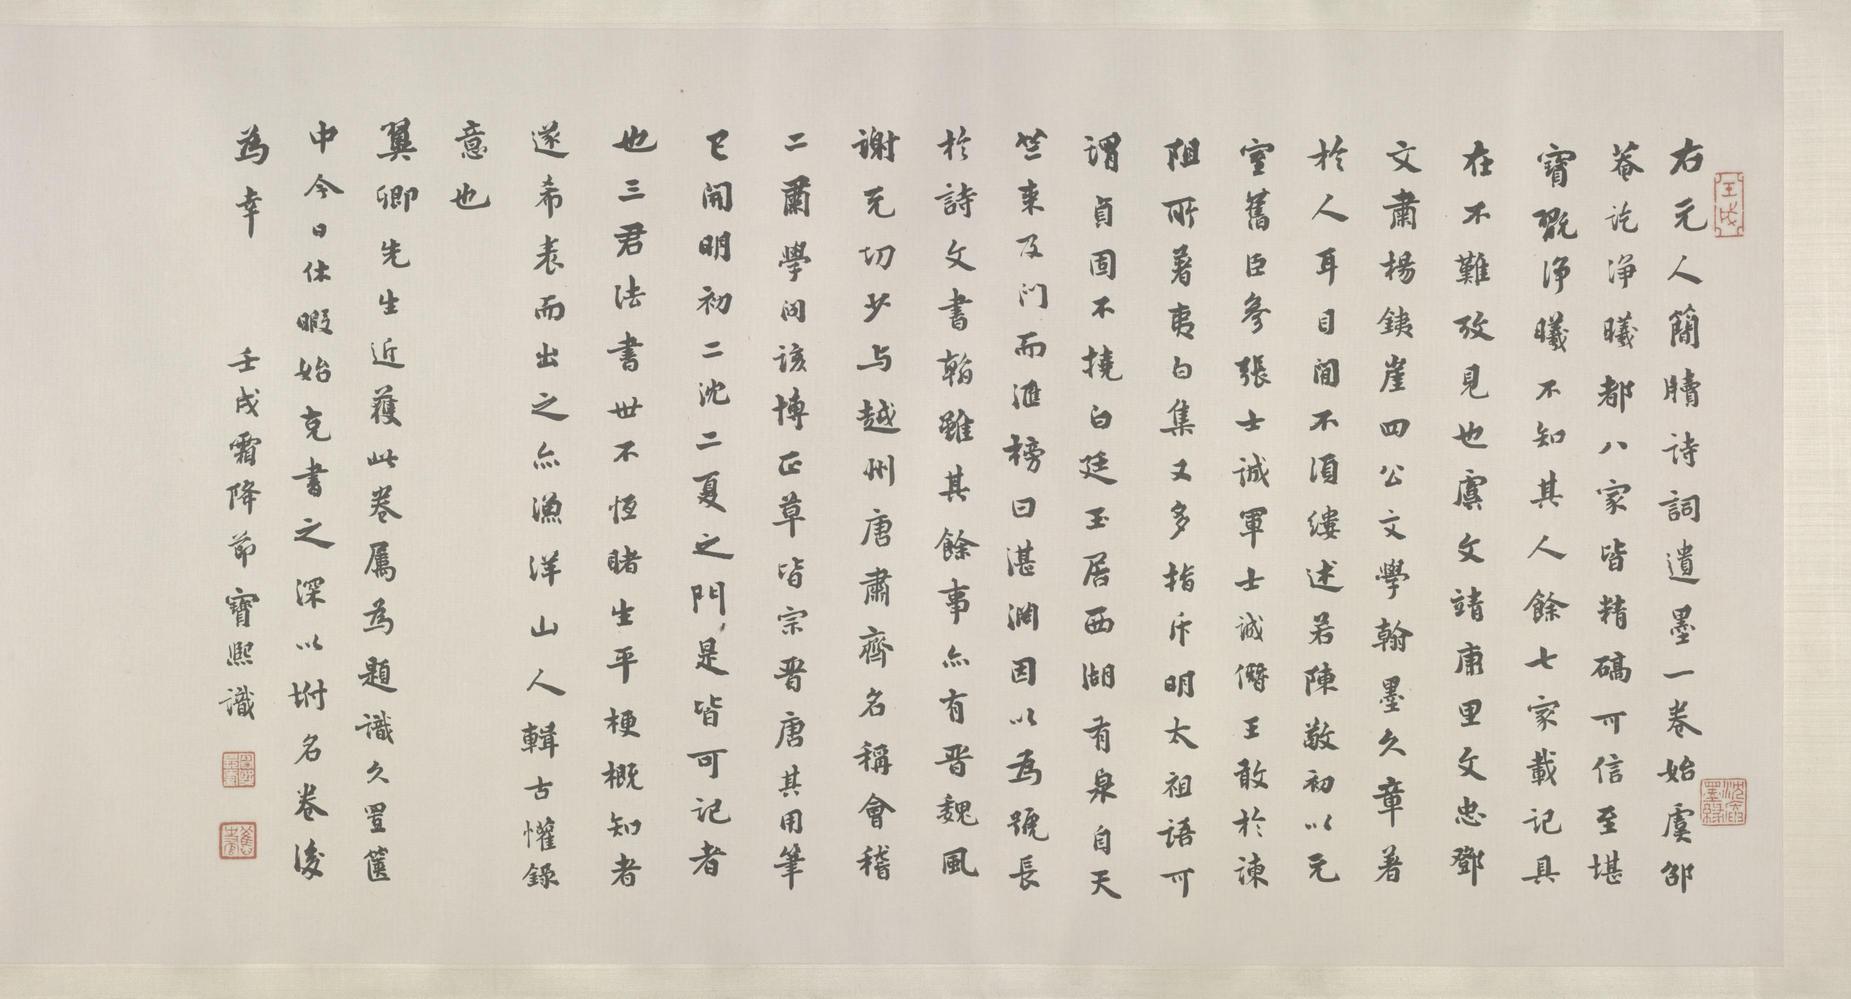 右元人簡牘詩詞遺墨一卷始虞邵
菴訖浄曦都八家皆精碻可信至堪
寶翫浄曦不知其人餘七家載記具
在不難攷見也虞文靖康里文忠鄧
文肅楊銕崖四公文學翰墨久章著
於人耳目間不須縷述若陳敬初以元
室舊臣參張士誠軍士誠僭王敢於諫
阻所著夷白集又多指斥明太祖語可
謂貞固不撓白廷玉居西湖有泉自天
竺來及门而滙榜曰湛淵因以為號長
於詩文書翰雖其餘事亦有晋魏風
謝无切少与越州唐肅齊名稱會稽
二肅學问該博正草皆宗晋唐其用筆
已開明初二沈二夏之門是皆可记者
也三君法書世不恆睹生平梗概知者
遂希表而出之亦漁洋山人輯古懽錄
意也
翼卿先生近獲此卷属為題識久置篋
中今日休暇始克書之深以坿名卷後
為幸
壬戌霜降節寶熙識
壬戌